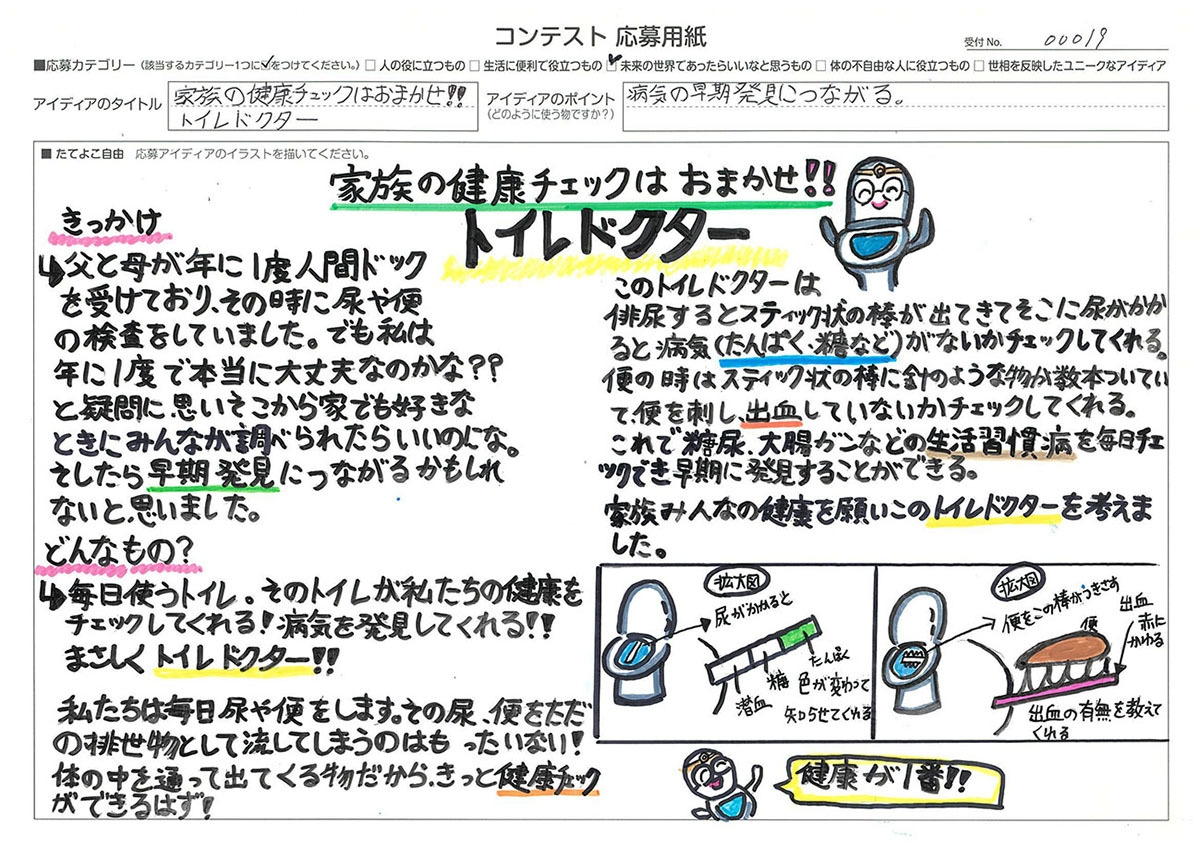 コンテスト 応募用紙
受付 No. 00019
■応募カテゴリー（該当するカテゴリー1つに☑をつけてください。） □ 人の役に立つもの □ 生活に便利で役立つもの ☑ 未来の世界であったらいいなと思うもの □ 体の不自由な人に役立つもの □ 世相を反映したユニークなアイディア
アイディアのタイトル
家族の健康チェックはおまかせ!!
トイレドクター
アイディアのポイント
（どのように使う物ですか？）
病気の早期発見につながる。
■ たてよこ自由 応募アイディアのイラストを描いてください。
家族の健康チェックは おまかせ!!
トイレドクター
きっかけ
↳父と母が年に1度人間ドック
を受けており、その時に尿や便
の検査をしていました。でも私は
年に1度で本当に大丈夫なのかな??
と疑問に思いそこから家でも好きな
ときにみんなが調べられたらいいのにな。
そしたら早期発見につながるかもしれ
ないと、思いました。
どんなもの?
↳毎日使うトイレ。そのトイレが私たちの健康を
チェックしてくれる!病気を発見してくれる!!
まさしくトイレドクター!!
私たちは毎日尿や便をします。その尿、便をただ
の排世物として流してしまうのはもったいない!
体の中を通って出てくる物だから、きっと健康チェック
ができるはず!
このトイレドクターは
排尿するとスティック状の棒が出てきてそこに尿がかか
ると病気(たんぱく・糖など)がないかチェックしてくれる。
便の時はスティック状の棒に針のような物が数本ついてい
て、便を刺し、出血していないかチェックしてくれる。
これで糖尿、大腸ガンなどの生活習慣病を毎日チェ
ックでき早期に発見することができる。
家族みんなの健康を願いこのトイレドクターを考えま
した。
拡大図
尿がかかると
たんぱく
糖
潜血
色が変わって
知らせてくれる
拡大図
便をこの棒がつきさす
便
出血
赤に
かわる
出血の有無を教えて
くれる
健康が1番!!